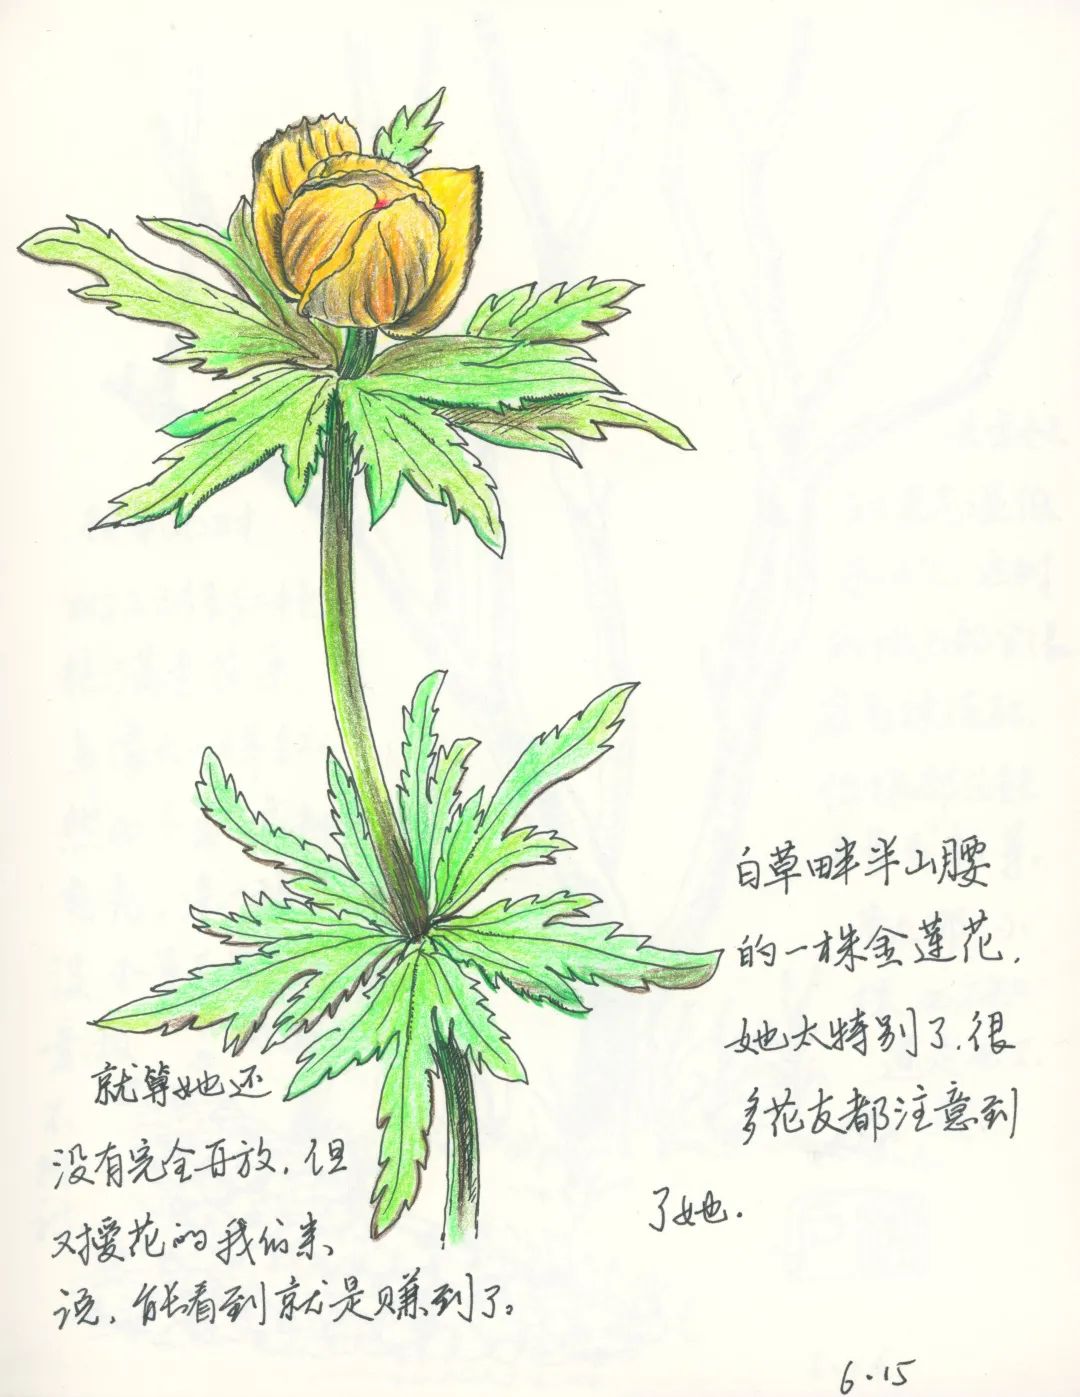 白草畔半山腰
的一株金莲花.
她太特别了.很
多花友都注意到
了她.
就算她还
没有完全放.但
对爱花的我们来
说,能看到就是赚到了。
6.15